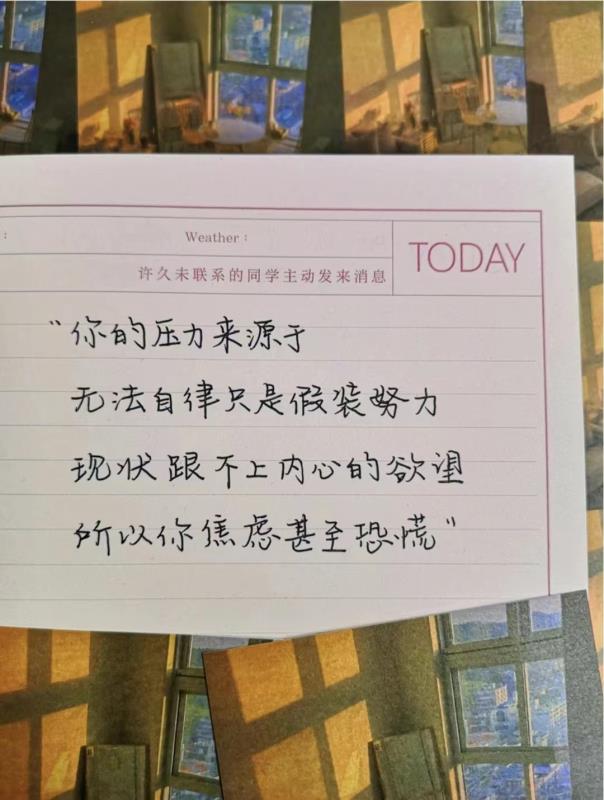 :
Weather :
TODAY
许久未联系的同学主动发来消息
“你的压力来源于
无法自律只是假装努力
现状跟不上内心的欲望
所以你焦虑甚至恐慌”